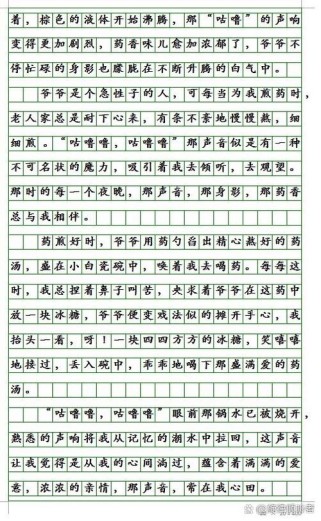 着，棕色的液体开始沸腾，那“咕噜”的声响
变得更加剧烈，药香味儿愈加浓郁了，爷爷不
停忙碌的身影也朦胧在不断升腾的白气中。
爷爷是个急性子的人，可每当为我煎药时，
老人家总是耐下心来，有条不紊地慢慢熬，细
细煎。“咕噜噜，咕噜噜”那声音似是有一种
不可名状的魔力，吸引着我去倾听，去观望。
那时的每一个夜晚，那声音，那身影，那药香
总与我相伴。
药煎好时，爷爷用药勺舀出精心熬好的药
汤，盛在小白瓷碗中，唤着我去喝药。每每这
时，我总捏着鼻子叫苦，央求着爷爷在这药中
放一块冰糖，爷爷便变戏法似的摊开手心，我
抬头一看，呀！一块四四方方的冰糖，笑嘻嘻
地接过，丢入碗中，乖乖地喝下那盛满爱的药
汤。
“咕噜噜，咕噜噜”眼前那锅水已被烧开，
熟悉的声响将我从记忆的潮水中拉回，这声音
让我觉得是从我的心间淌过，蕴含着满满的爱
意，浓浓的亲情，那声音，常在我心田。